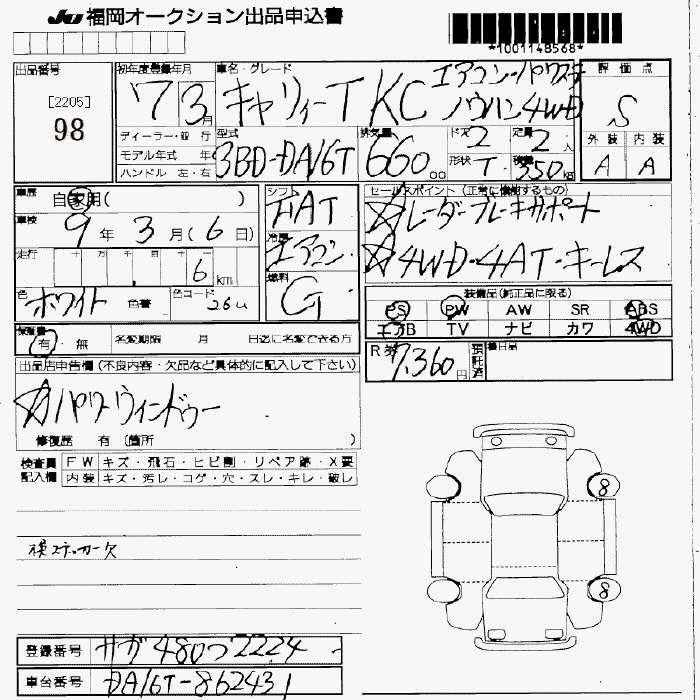 JU 福岡オークション出品申込書
*1001148568*
出品番号
[2205]
98
初年度登録年月
'7 3月
車名・グレード
キャリィートラック KC エアコン・パワステ
ノウハン4WD
評価点
S
外装 内装
A A
ディーラー・並行
モデル年式 年
ハンドル 左・右
型式
3BD-DA16T
排気量
660 cc
ドア 2
定員 2人
形状 T
積載 350 kg
車歴 自家用( )
車検 9年3月(6日)
走行 十 万 千 百 十 一
6 km
色 ホワイト 色番
色コード 26U
シフト FAT
冷房 エアコン
燃料 G
セールスポイント (正常に機能するもの)
☆レーダーブレーキサポート
☆4WD・4AT・キーレス
装備品(純正品に限る)
PS PW AW SR ABS
エアB TV ナビ カワ 4WD
保証書 有・無 名変期限 月 日迄に名変できる方
R券 7,360円 預託済
出品店申告欄 (不良内容・欠品など具体的に記入して下さい)
☆パワーウィンドゥー
修復歴 有 (箇所 )
検査員記入欄
FW キズ・飛石・ヒビ割・リペア跡・X要
内装 キズ・汚レ・コゲ・穴・スレ・キレ・破レ
検ステッカー欠
8
8
登録番号 サガ 480つ2224
車台番号 DA16T-862431